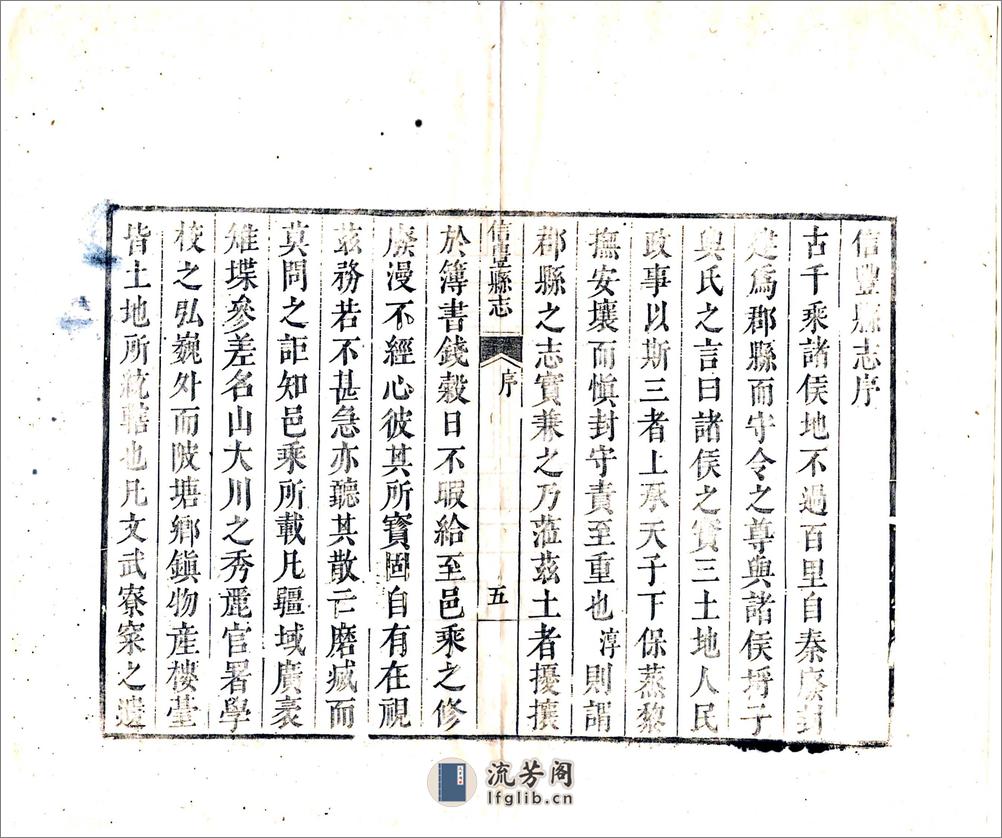 信豐縣志序
古千乘諸侯地不過百里自秦廢封
建爲郡縣而守令之尊與諸侯埒子
輿氏之言曰諸侯之寶三土地人民
政事以斯三者上承天子下保蒸黎
撫安壤而愼封守責至重也淳則謂
郡縣之志實兼之乃蒞茲土者擾攘
信豐縣志 序 五
於簿書錢穀日不暇給至邑乘之修
廢漫不經心彼其所寶固自有在視
茲務若不甚急亦聽其散亡磨滅而
莫問之詎知邑乘所載凡疆域廣袤
雉堞參差名山大川之秀麗官署學
校之弘巍外而陂塘鄉鎭物產樓臺
皆土地所統轄也凡文武寮寀之遺
流芳阁
lfglib.cn